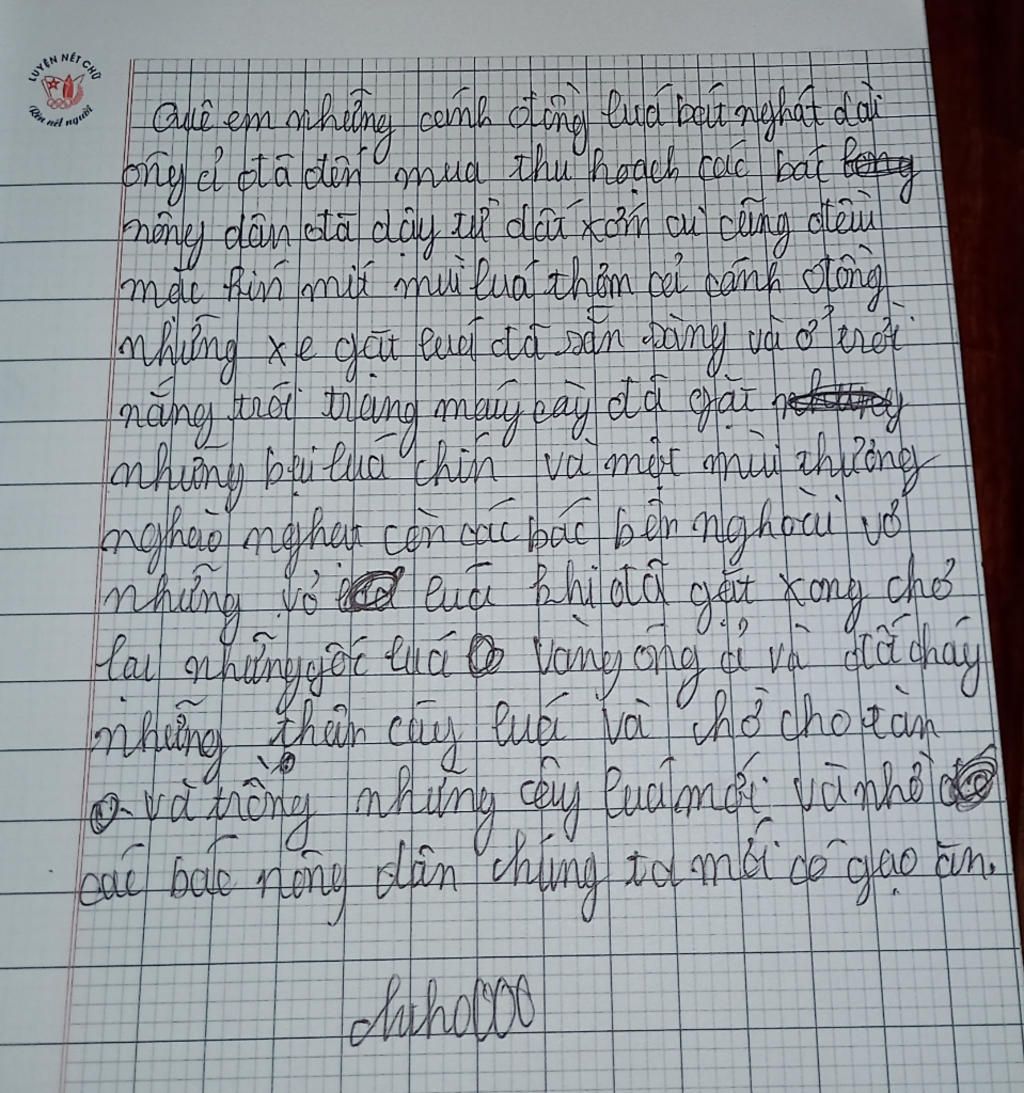 LUYỆN NÉT CHỮ
Rèn nết người
Quê em những cánh đồng luá bát nghát dài
óng ả đã đến mùa thu hoạch các bát
nông dân đã dậy từ
mặc kín mít mùi luá thơm cả cánh đồng
những xe gặt luá đã sẵn sàng và ở trời
nắng trời máy cày đã gặt
những bụi luá chín và một mùi
nghào nghạt còn các bác bên nghoài vỏ
những vỏ luá khi đã gặt xong chở
lại những gốc luá vàng óng ả và đã cháy
những thân cây luá và chờ cho tàn
và trồng những cây luá mới và nhờ
các bác nông dân chúng ta mới có gạo ăn.